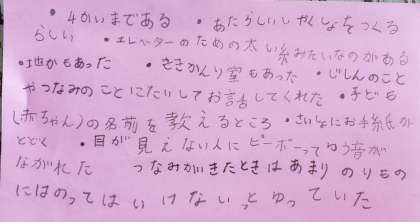 ・4かいまである ・あたらしいしやくしょをつくる
らしい ・エレベーターのための太い糸みたいなのがある
・地かもあった ・ききかんり室もあった ・じしんのこと
やつなみのことにたいしてお話してくれた ・子ども
(赤ちゃん)の名前を教えるところ ・さいしょにお手紙が
とどく ・目が見えない人にピーポーってゆう音が
ながれた つなみがきたときはあまりのりもの
にはのってはいけないっとゆっていた